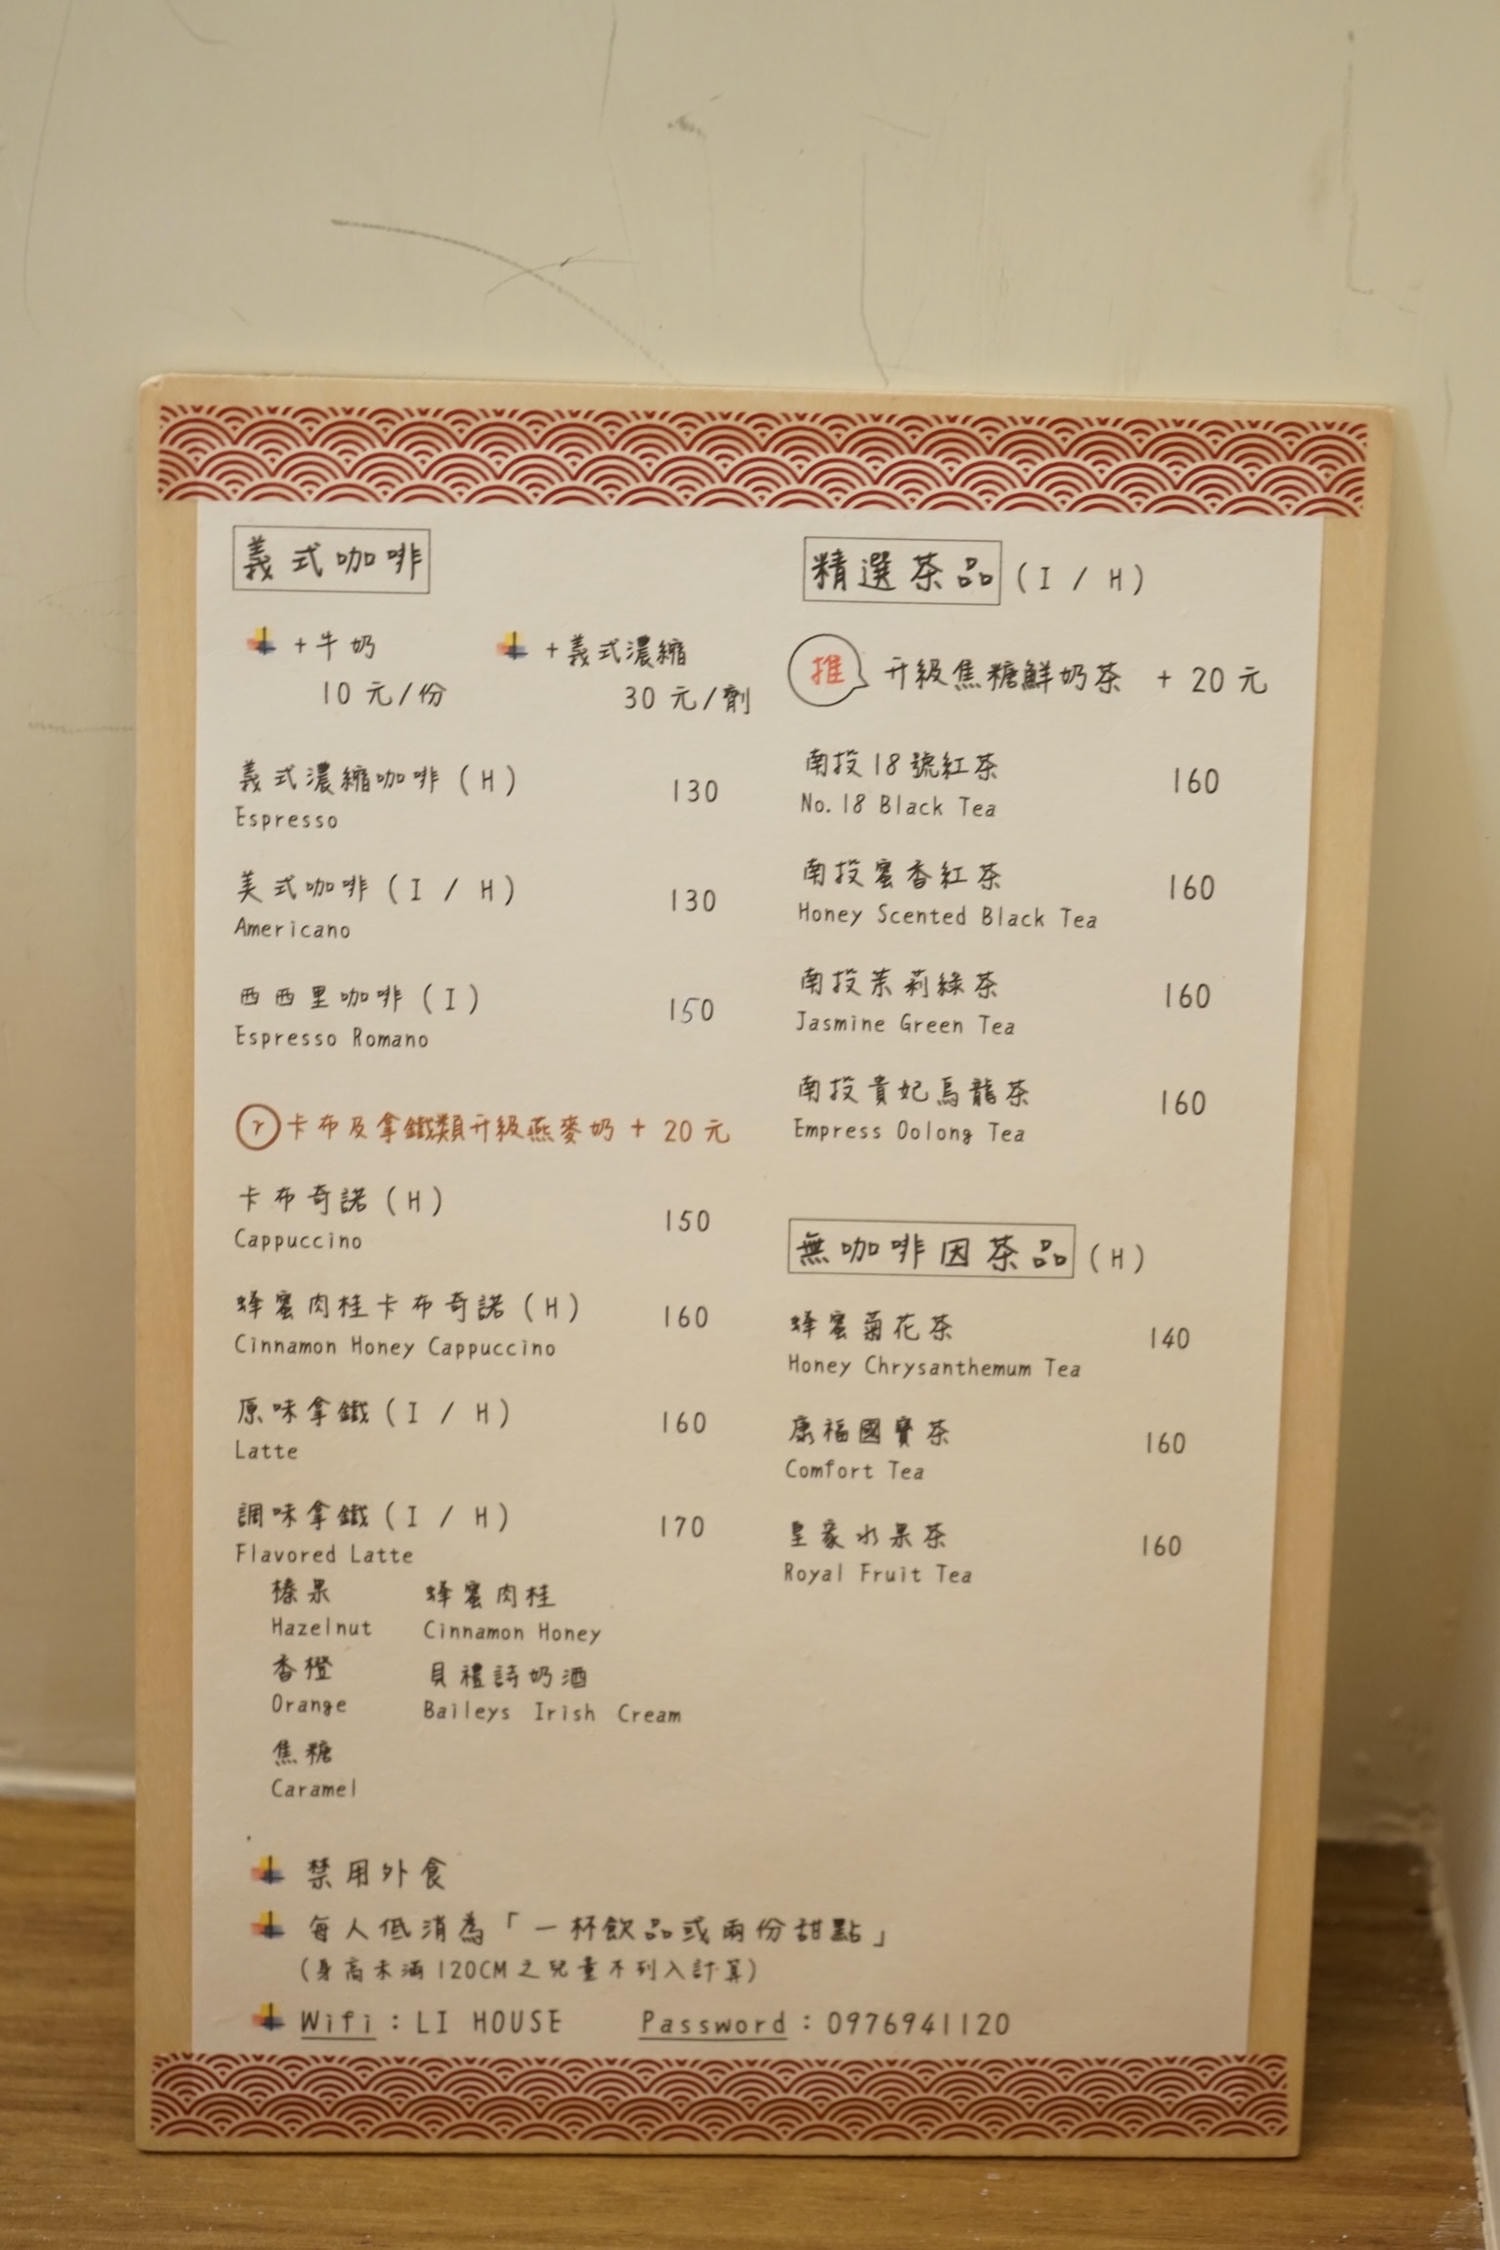 義式咖啡
+牛奶
10 元/份
+義式濃縮
30 元/劑
義式濃縮咖啡 (H) 130
Espresso
美式咖啡 (I / H) 130
Americano
西西里咖啡 (I) 150
Espresso Romano
卡布及拿鐵類升級燕麥奶 + 20 元
卡布奇諾 (H) 150
Cappuccino
蜂蜜肉桂卡布奇諾 (H) 160
Cinnamon Honey Cappuccino
原味拿鐵 (I / H) 160
Latte
調味拿鐵 (I / H) 170
Flavored Latte
榛果 蜂蜜肉桂
Hazelnut Cinnamon Honey
香橙 貝禮詩奶酒
Orange Baileys Irish Cream
焦糖
Caramel
精選茶品 (I / H)
推 升級焦糖鮮奶茶 + 20 元
南投18號紅茶 160
No. 18 Black Tea
南投蜜香紅茶 160
Honey Scented Black Tea
南投茉莉綠茶 160
Jasmine Green Tea
南投貴妃烏龍茶 160
Empress Oolong Tea
無咖啡因茶品 (H)
蜂蜜菊花茶 140
Honey Chrysanthemum Tea
康福國寶茶 160
Comfort Tea
皇家水果茶 160
Royal Fruit Tea
禁用外食
每人低消為「一杯飲品或兩份甜點」
(身高未滿120CM之兒童不列入計算)
Wifi : LI HOUSE Password : 0976941120